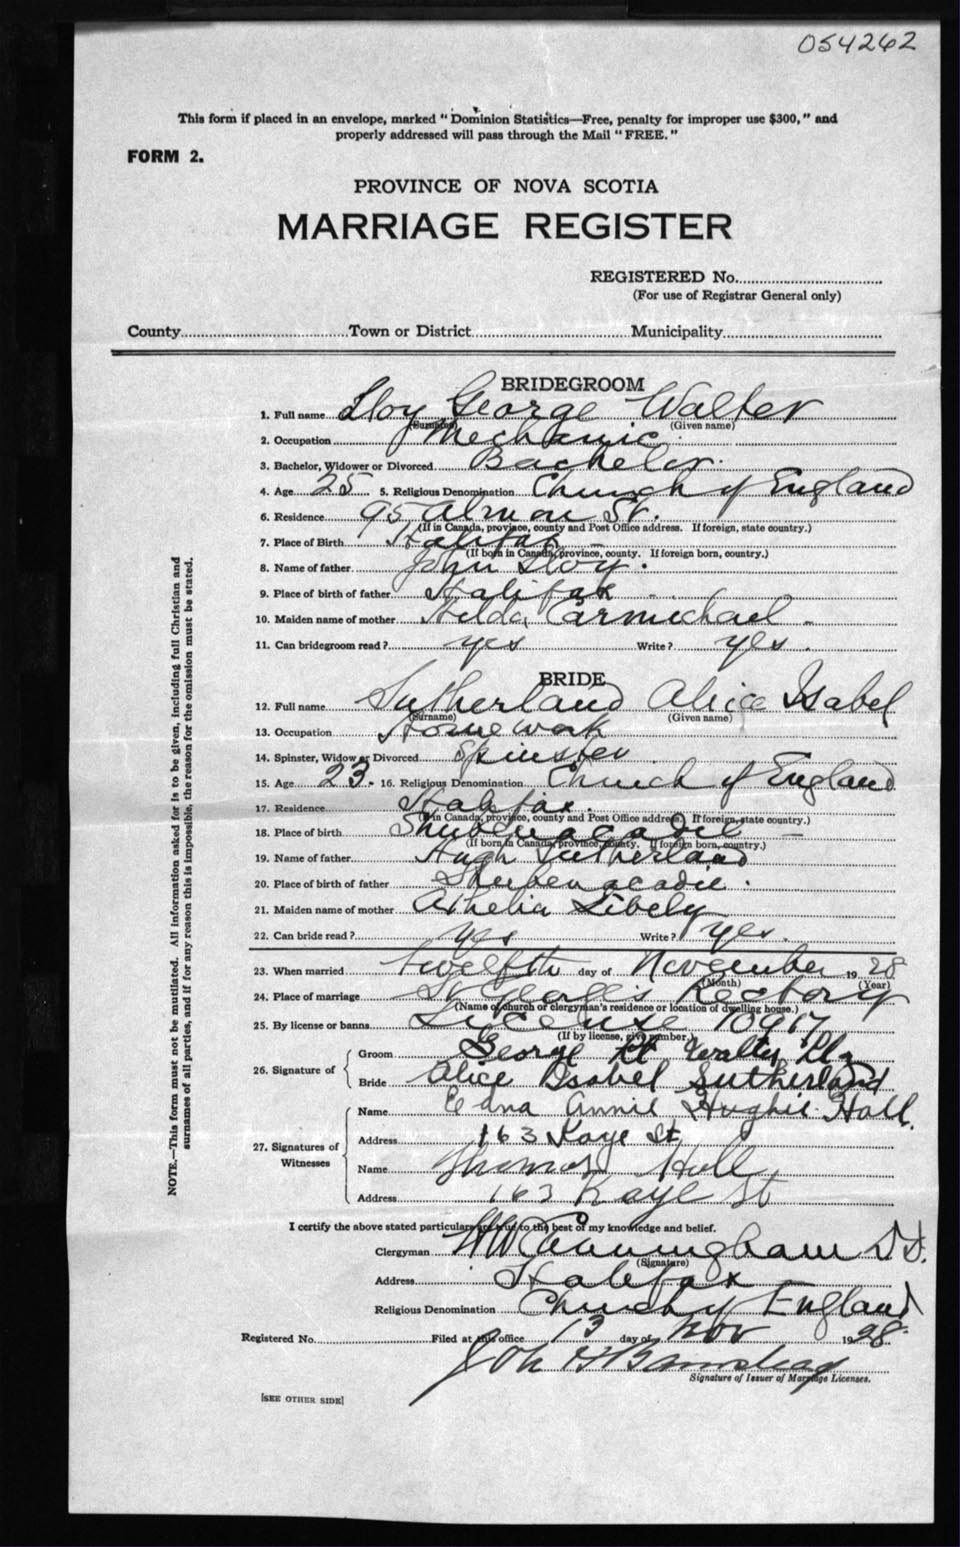 054262
This form if placed in an envelope, marked "Dominion Statistics—Free, penalty for improper use $300," and
properly addressed will pass through the Mail "FREE."
FORM 2.
PROVINCE OF NOVA SCOTIA
MARRIAGE REGISTER
REGISTERED No.
(For use of Registrar General only)
County Town or District Municipality
BRIDEGROOM
1. Full name Lloy George Walter
(Surname) (Given name)
2. Occupation Mechanic
3. Bachelor, Widower or Divorced Bachelor.
4. Age 25 5. Religious Denomination Church of England
6. Residence 95 Almon St.
(If in Canada, province, county and Post Office address. If foreign, state country.)
7. Place of Birth Halifax
(If born in Canada, province, county. If foreign born, country.)
8. Name of father John Lloy.
9. Place of birth of father Halifax
10. Maiden name of mother Hilda Carmichael
11. Can bridegroom read? yes Write? yes.
BRIDE
12. Full name Sutherland Alice Isabel
(Surname) (Given name)
13. Occupation Homework
14. Spinster, Widow or Divorced Spinster
15. Age 23 16. Religious Denomination Church of England
17. Residence Halifax.
(If in Canada, province, county and Post Office address. If foreign, state country.)
18. Place of birth Shubenacadie
(If born in Canada, province, county. If foreign born, country.)
19. Name of father Hugh Sutherland
20. Place of birth of father Shubenacadie.
21. Maiden name of mother Athelia
22. Can bride read? yes Write? yes.
23. When married twelfth day of November 1928
(Month) (Year)
24. Place of marriage St George's Rectory
(Name of church or clergyman's residence or location of dwelling house.)
25. By license or banns License 10917
(If by license, give number.)
26. Signature of
Groom George Walter
Bride Alice Isabel Sutherland
27. Signatures of Witnesses
Name Edna Annie Hughie Hall.
Address 163 Kaye St
Name Thomas Hall
Address 163 Kaye St
I certify the above stated particulars are true to the best of my knowledge and belief.
Clergyman Cunningham D.D.
(Signature)
Address Halifax
Religious Denomination Church of England
Registered No. Filed at this office 13 day of Nov 1928.
Signature of Issuer of Marriage Licenses.
[SEE OTHER SIDE]
NOTE.—This form must not be mutilated. All information asked for is to be given, including full Christian and
surnames of all parties, and if for any reason this is impossible, the reason for the omission must be stated.